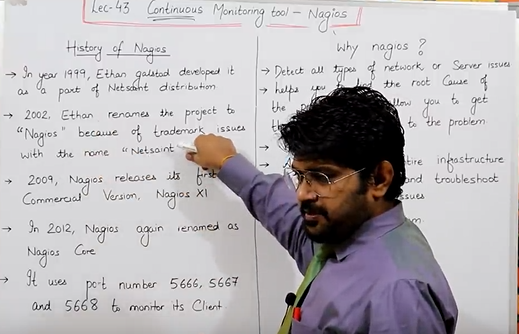 Lec-43 Continuous Monitoring tool - Nagios
History of Nagios
→ In year 1999, Ethan galstad developed it
as a part of Netsaint distribution
→ 2002, Ethan renames the project to
"Nagios" because of trademark issues
with the name "Netsaint
→ 2009, Nagios releases its first
Commercial Version, Nagios XI
→ In 2012, Nagios again renamed as
Nagios Core
→ It uses port number 5666, 5667
and 5668 to monitor its Client
Why nagios?
→ Detect all types of network or Server issues
→ helps you to the root Cause of
the allow you to get
to the problem
infrastructure
and troubleshoot
issues